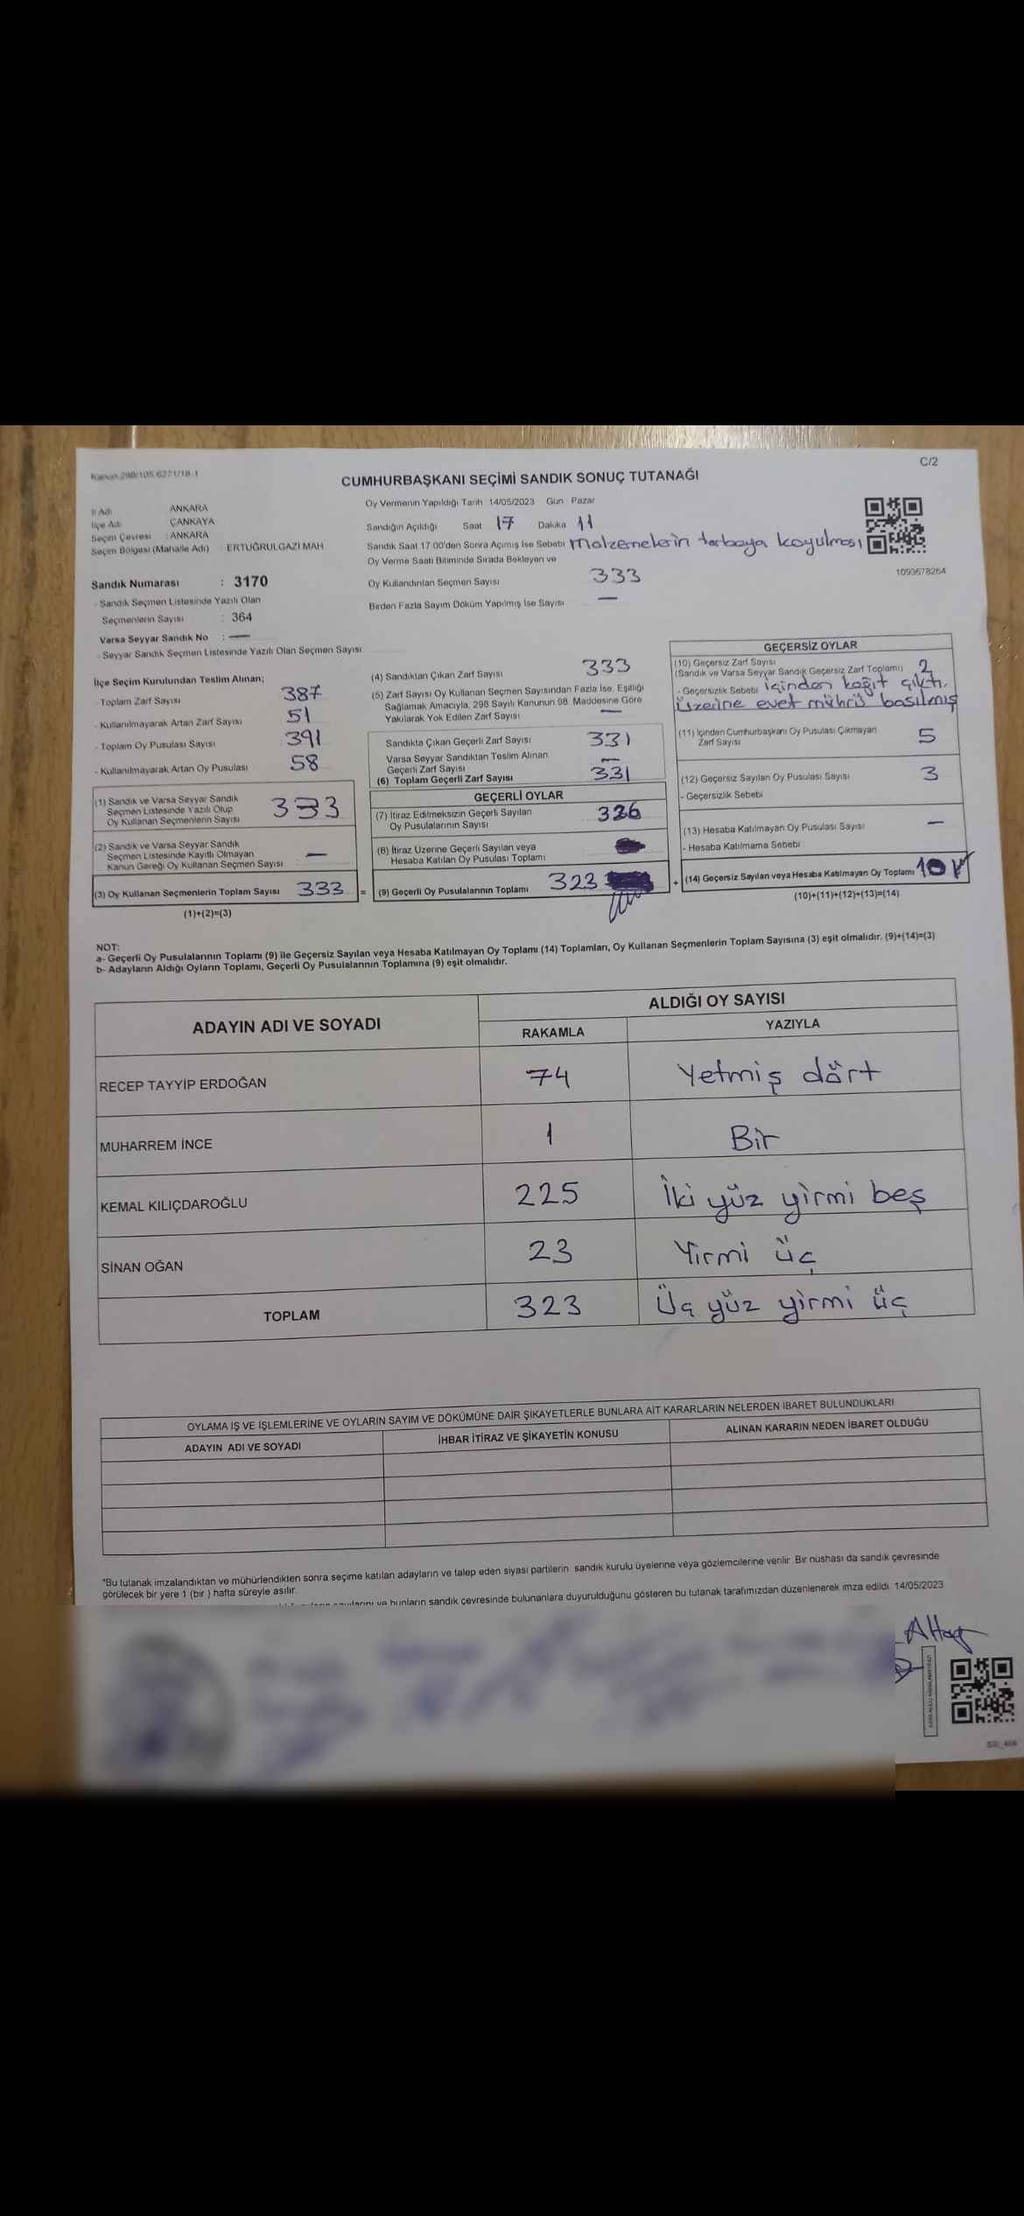 C/2
CUMHURBAŞKANI SEÇİMİ SANDIK SONUÇ TUTANAĞI
İl Adı ANKARA
İlçe Adı ÇANKAYA
Seçim Çevresi : ANKARA
Seçim Bölgesi (Mahalle Adı) : ERTUĞRULGAZİ MAH
Sandık Numarası : 3170
- Sandık Seçmen Listesinde Yazılı Olan
Seçmenlerin Sayısı : 364
Varsa Seyyar Sandık No : —
- Seyyar Sandık Seçmen Listesinde Yazılı Olan Seçmen Sayısı
Oy Vermenin Yapıldığı Tarih : 14/05/2023 Gün : Pazar
Sandığın Açıldığı Saat 17 Dakika 11
Sandık Saat 17.00'den Sonra Açımış İse Sebebi Malzemelerin torbaya koyulması
Oy Verme Saati Bitiminde Sırada Bekleyen ve
Oy Kullandırılan Seçmen Sayısı 333
Birden Fazla Sayım Döküm Yapılmış İse Sayısı —
1093678264
İlçe Seçim Kurulundan Teslim Alınan;
- Toplam Zarf Sayısı 387
- Kullanılmayarak Artan Zarf Sayısı 51
- Toplam Oy Pusulası Sayısı 391
- Kullanılmayarak Artan Oy Pusulası 58
(1) Sandık ve Varsa Seyyar Sandık
Seçmen Listesinde Yazılı Olup
Oy Kullanan Seçmenlerin Sayısı 333
(2) Sandık ve Varsa Seyyar Sandık
Seçmen Listesinde Kayıtlı Olmayan
Kanun Gereği Oy Kullanan Seçmen Sayısı —
(3) Oy Kullanan Seçmenlerin Toplam Sayısı 333 =
(1)+(2)=(3)
(4) Sandıktan Çıkan Zarf Sayısı 333
(5) Zarf Sayısı Oy Kullanan Seçmen Sayısından Fazla İse, Eşitliği
Sağlamak Amacıyla, 298 Sayılı Kanunun 98. Maddesine Göre
Yakılarak Yok Edilen Zarf Sayısı —
Sandıkta Çıkan Geçerli Zarf Sayısı 331
Varsa Seyyar Sandıktan Teslim Alınan
Geçerli Zarf Sayısı —
(6) Toplam Geçerli Zarf Sayısı 331
GEÇERLİ OYLAR
(7) İtiraz Edilmeksizin Geçerli Sayılan
Oy Pusulalarının Sayısı 326
(8) İtiraz Üzerine Geçerli Sayılan veya
Hesaba Katılan Oy Pusulası Toplamı
(9) Geçerli Oy Pusulalarının Toplamı 323 +
GEÇERSİZ OYLAR
(10) Geçersiz Zarf Sayısı
(Sandık ve Varsa Seyyar Sandık Geçersiz Zarf Toplamı) 2
- Geçersizlik Sebebi içinden kağıt çıktı.
Üzerine evet mührü basılmış
(11) İçinden Cumhurbaşkanı Oy Pusulası Çıkmayan
Zarf Sayısı 5
(12) Geçersiz Sayılan Oy Pusulası Sayısı 3
- Geçersizlik Sebebi
(13) Hesaba Katılmayan Oy Pusulası Sayısı —
- Hesaba Katılmama Sebebi
(14) Geçersiz Sayılan veya Hesaba Katılmayan Oy Toplamı 10
(10)+(11)+(12)+(13)=(14)
NOT:
a- Geçerli Oy Pusulalarının Toplamı (9) ile Geçersiz Sayılan veya Hesaba Katılmayan Oy Toplamı (14) Toplamları, Oy Kullanan Seçmenlerin Toplam Sayısına (3) eşit olmalıdır. (9)+(14)=(3)
b- Adayların Aldığı Oyların Toplamı, Geçerli Oy Pusulalarının Toplamına (9) eşit olmalıdır.
ADAYIN ADI VE SOYADI ALDIĞI OY SAYISI
RAKAMLA YAZIYLA
RECEP TAYYİP ERDOĞAN 74 Yetmiş dört
MUHARREM İNCE 1 Bir
KEMAL KILIÇDAROĞLU 225 İki yüz yirmi beş
SİNAN OĞAN 23 Yirmi üç
TOPLAM 323 Üç yüz yirmi üç
OYLAMA İŞ VE İŞLEMLERİNE VE OYLARIN SAYIM VE DÖKÜMÜNE DAİR ŞİKAYETLERLE BUNLARA AİT KARARLARIN NELERDEN İBARET BULUNDUKLARI
ADAYIN ADI VE SOYADI İHBAR İTİRAZ VE ŞİKAYETİN KONUSU ALINAN KARARIN NEDEN İBARET OLDUĞU
*Bu tutanak imzalandıktan ve mühürlendikten sonra seçime katılan adayların ve talep eden siyasi partilerin sandık kurulu üyelerine veya gözlemcilerine verilir. Bir nüshası da sandık çevresinde
görülecek bir yere 1 (bir ) hafta süreyle asılır.
bunların sandık çevresinde bulunanlara duyurulduğunu gösteren bu tutanak tarafımızdan düzenlenerek imza edildi. 14/05/2023